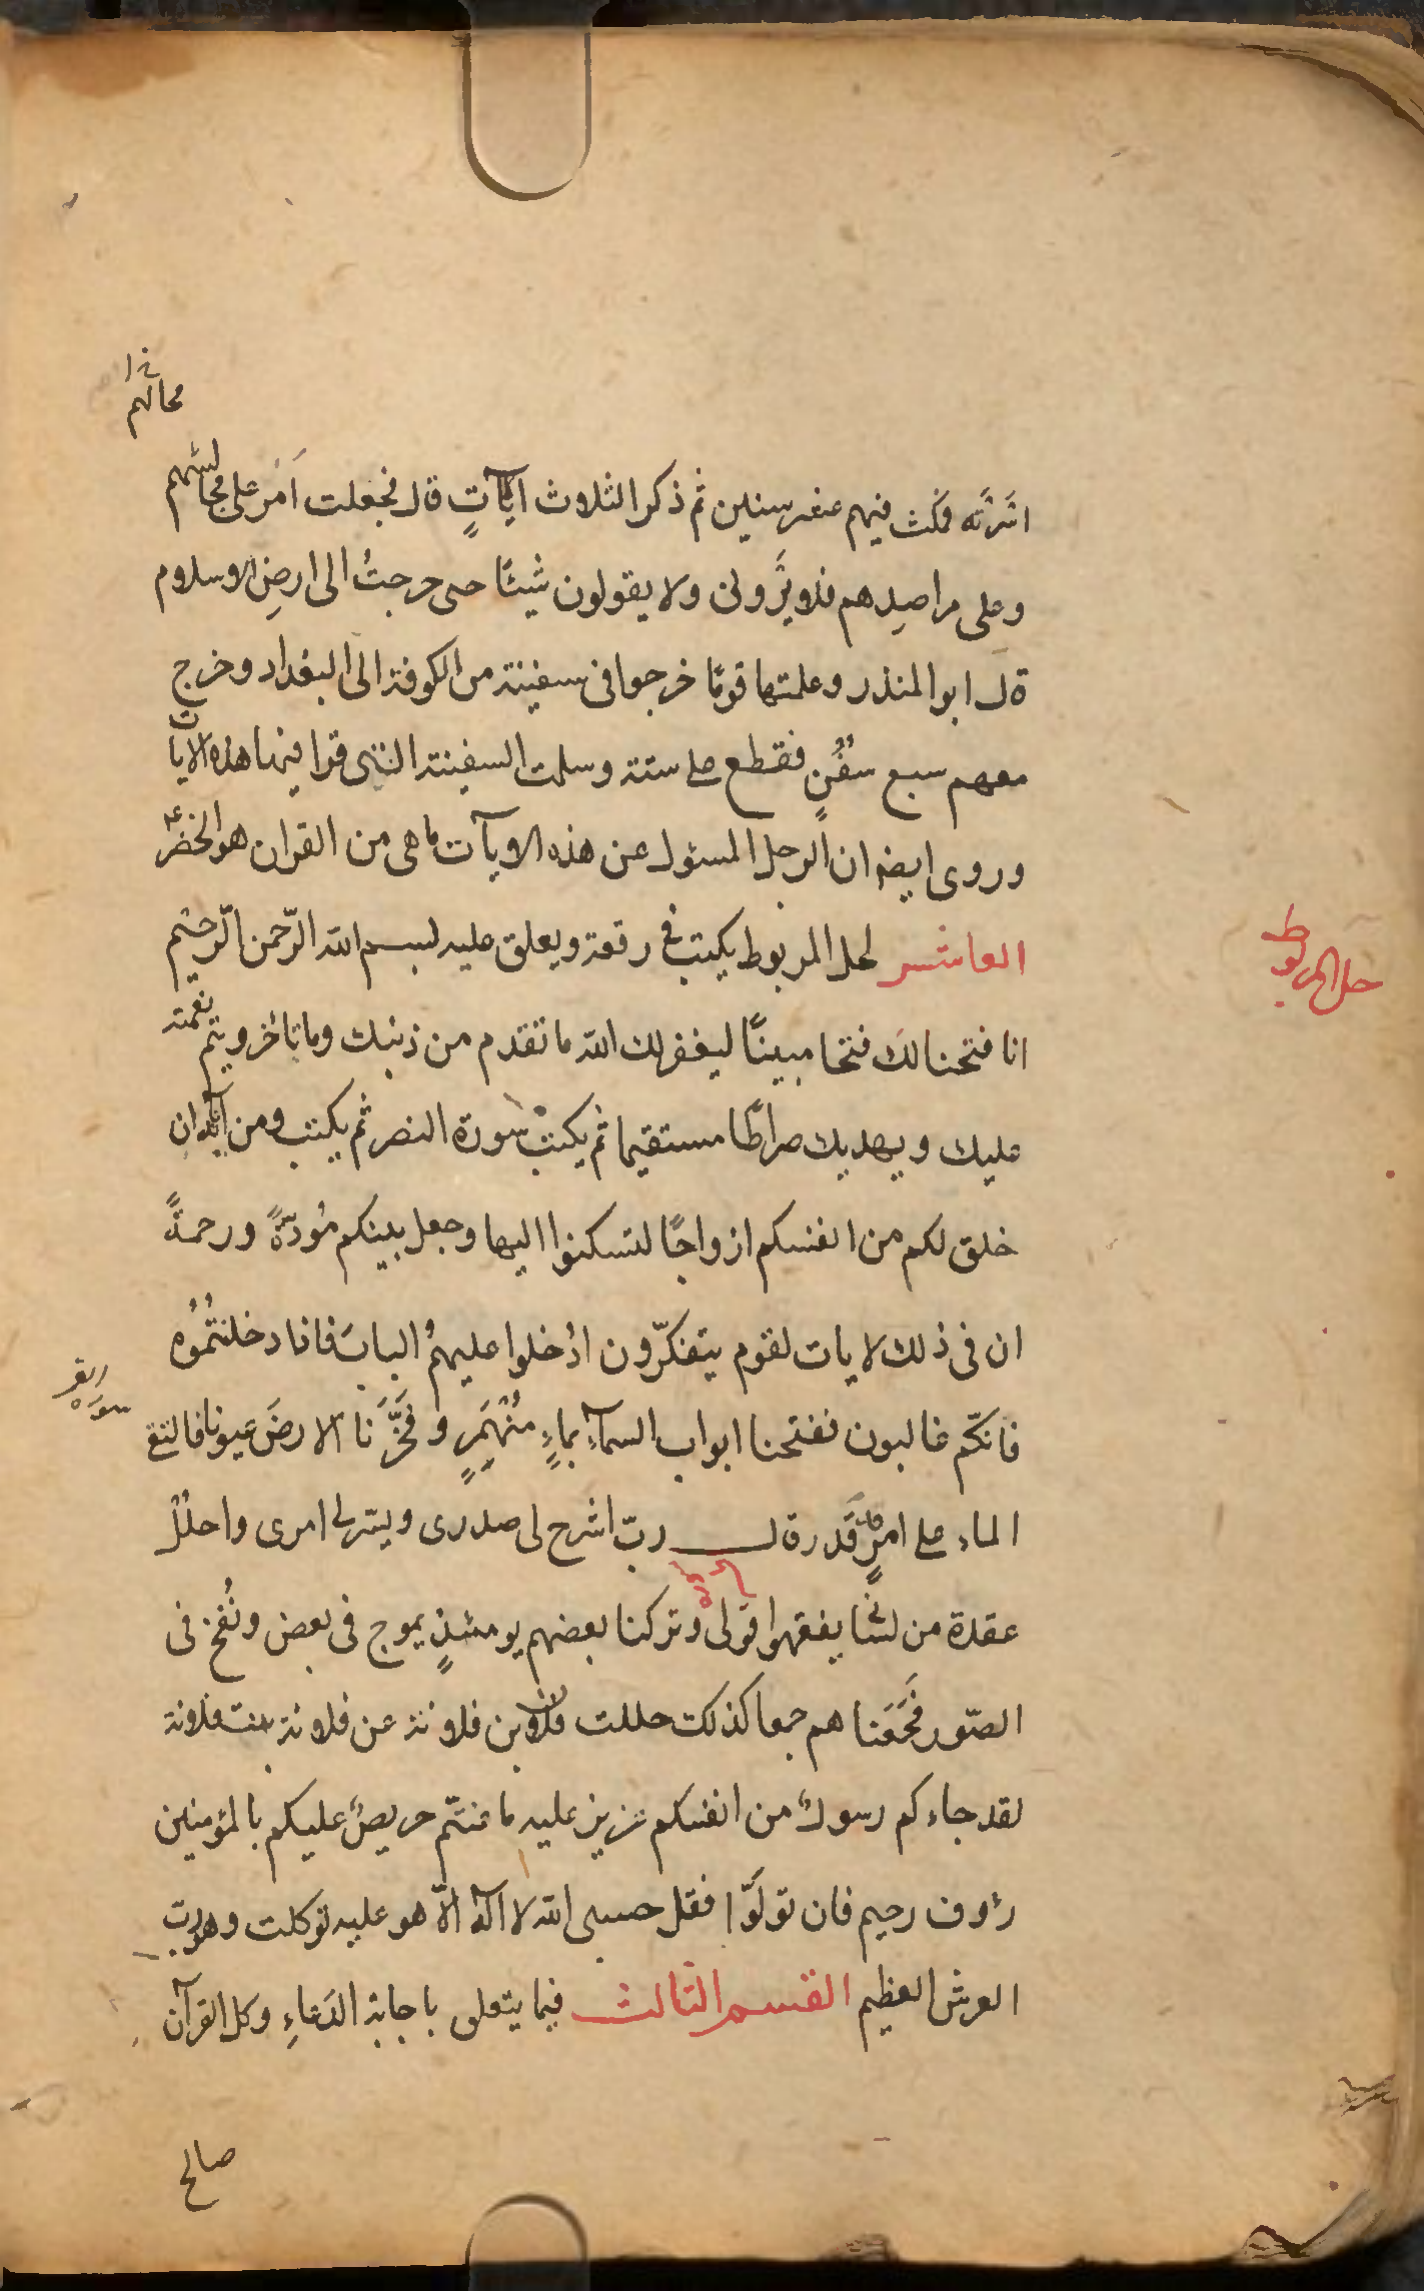 محالهم
اشرته فمكث فيهم عشر سنين ثم ذكر الثلاث ايآتٍ قال فجعلت امر على مجالسهم
وعلى مراصدهم فلا يروني ولا يقولون شيئًا حتى خرجتُ الى ارض الاسلام
قال ابو المنذر وعلمتها قومًا خرجوا فى سفينة من الكوفة الى البغداد وخرج
معهم سبع سُفُنٍ فقطع على ستة وسلمت السفينة التى قرا فيها هذه الايات
وروى ايضا ان الرجل المسئول عن هذه الايآت ما هى من القران هو الخضر ع
العاشر لحل المربوط يكتب فى رقعة ويعلق عليه لبسم الله الرّحمن الرّحيم
حل المربوط
انا فتحنا لك فتحا مبينًا ليغفر لك الله ما تقدم من ذنبك وما تاخر ويتم نعمته
عليك ويهديك صراطًا مستقيما ثم يكتب سورة النصر ثم يكتب ومن آياته ان
خلق لكم من انفسكم ازواجًا لتسكنوا اليها وجعل بينكم مودّةً ورحمةً
ان فى ذلك لايات لقوم يتفكّرون ادُخلوا عليهمُ الباب فاذا دخلتُمُوُه
فانّكم غالبون ففتحنا ابواب السمآءِ بماءٍ مُنْهَمِرٍ وفَجَّرَنَا الارضَ عيونا فالتق
الماء على امرٍ قد قَدر قال ربّ اشرح لى صدرى ويسّر لى امرى واحلُلْ
عقدة من لسانى يفقهوا قولى وتركنا بعضهم يومئذٍ يموج فى بعض ونُفخ فى
الصّور فَجَمَعَنا هم جمعا كذلك حللت فلان بن فلانة عن فلانة بنت فلانة
لقد جاءكم رسولٌ من انفسكم عزيز عليه ما عنتّم حريصٌ عليكم بالمؤمنين
رؤف رحيم فان تولَّوْا فقل حسبى الله لا آله الاّ هو عليه توكلت وهو رب
العرش العظيم القسم الثالث فيما يتعلق باجابة الدّعاءِ وكل القرآن
صالح